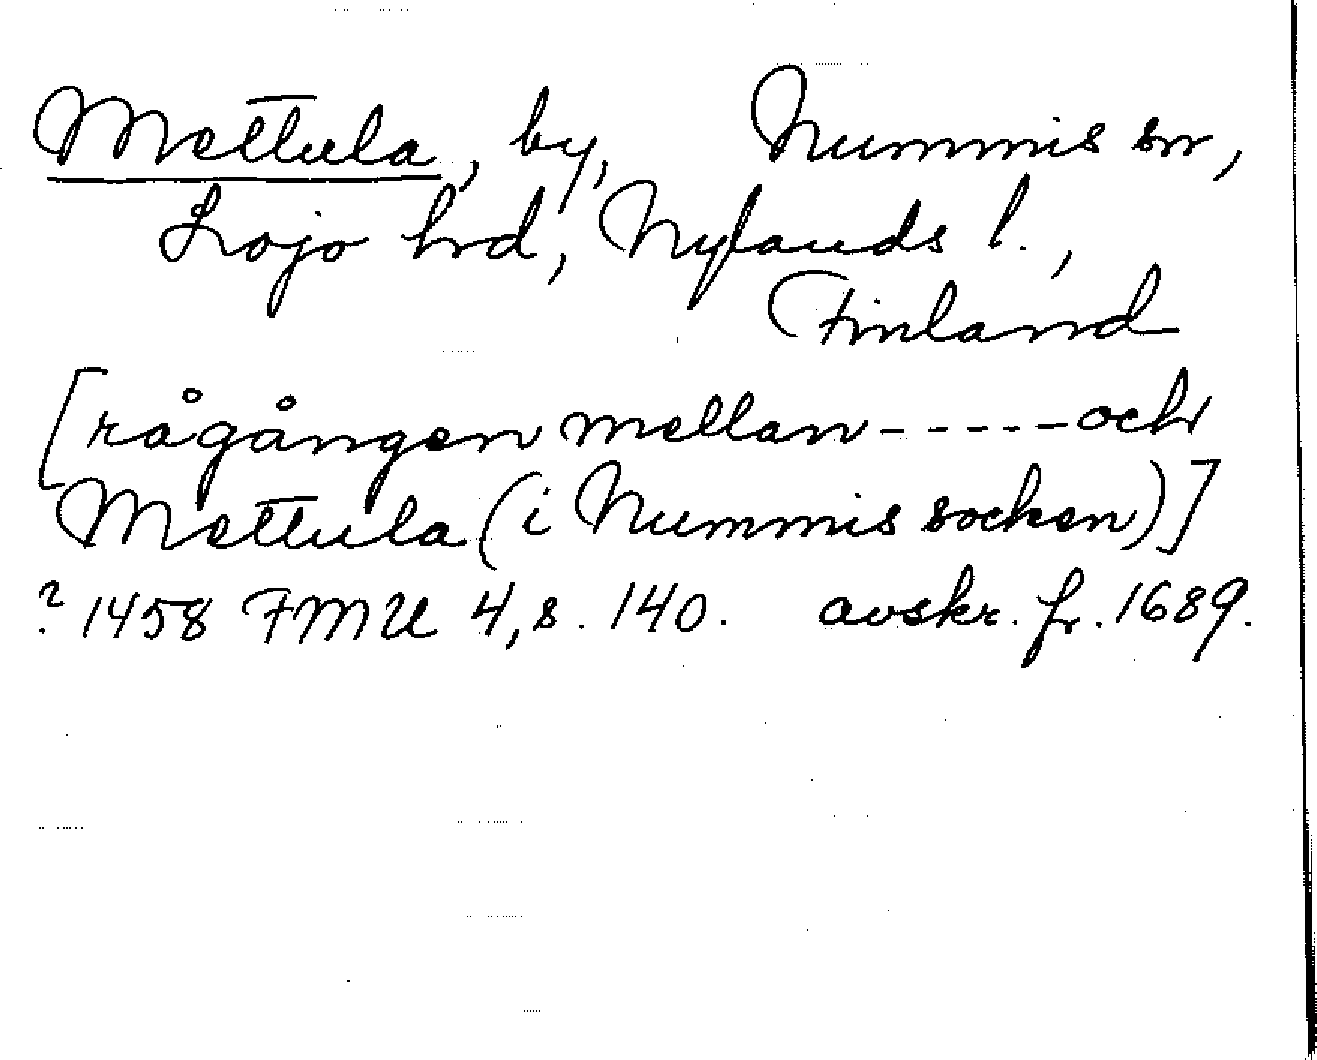 Mettula, by, Nummis sn,
Lojo hrd, Nylands l.,
Finland
[rågången mellan-----och
Mettula (i Nummis socken)]
? 1458 FMU 4, s. 140. avskr. fr. 1689.